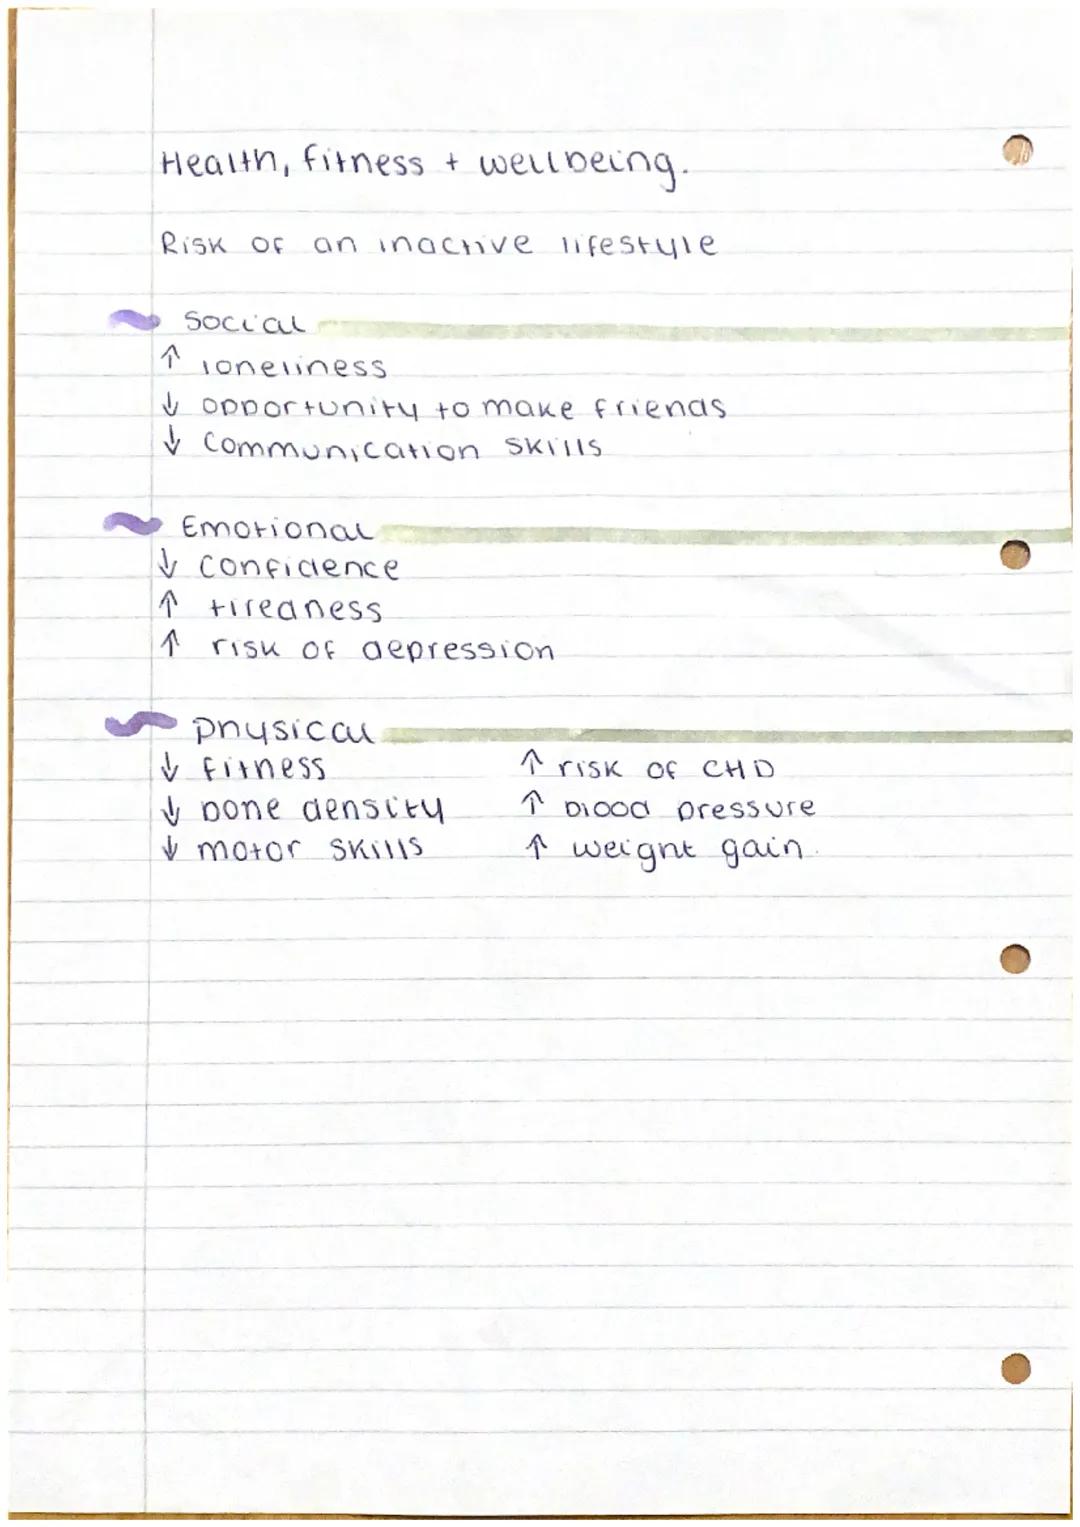 Health, fitness + wellbeing.
Risk of an inactive lifestyle
Social
↑ loneliness
↓ opportunity to make friends
↓ Communication skills
Emotional
↓ Confidence
↑ tiredness
↑ risk of depression
physical
↓ fitness ↑ risk of CHD
↓ bone density ↑ blood pressure
↓ motor skills ↑ weight gain.